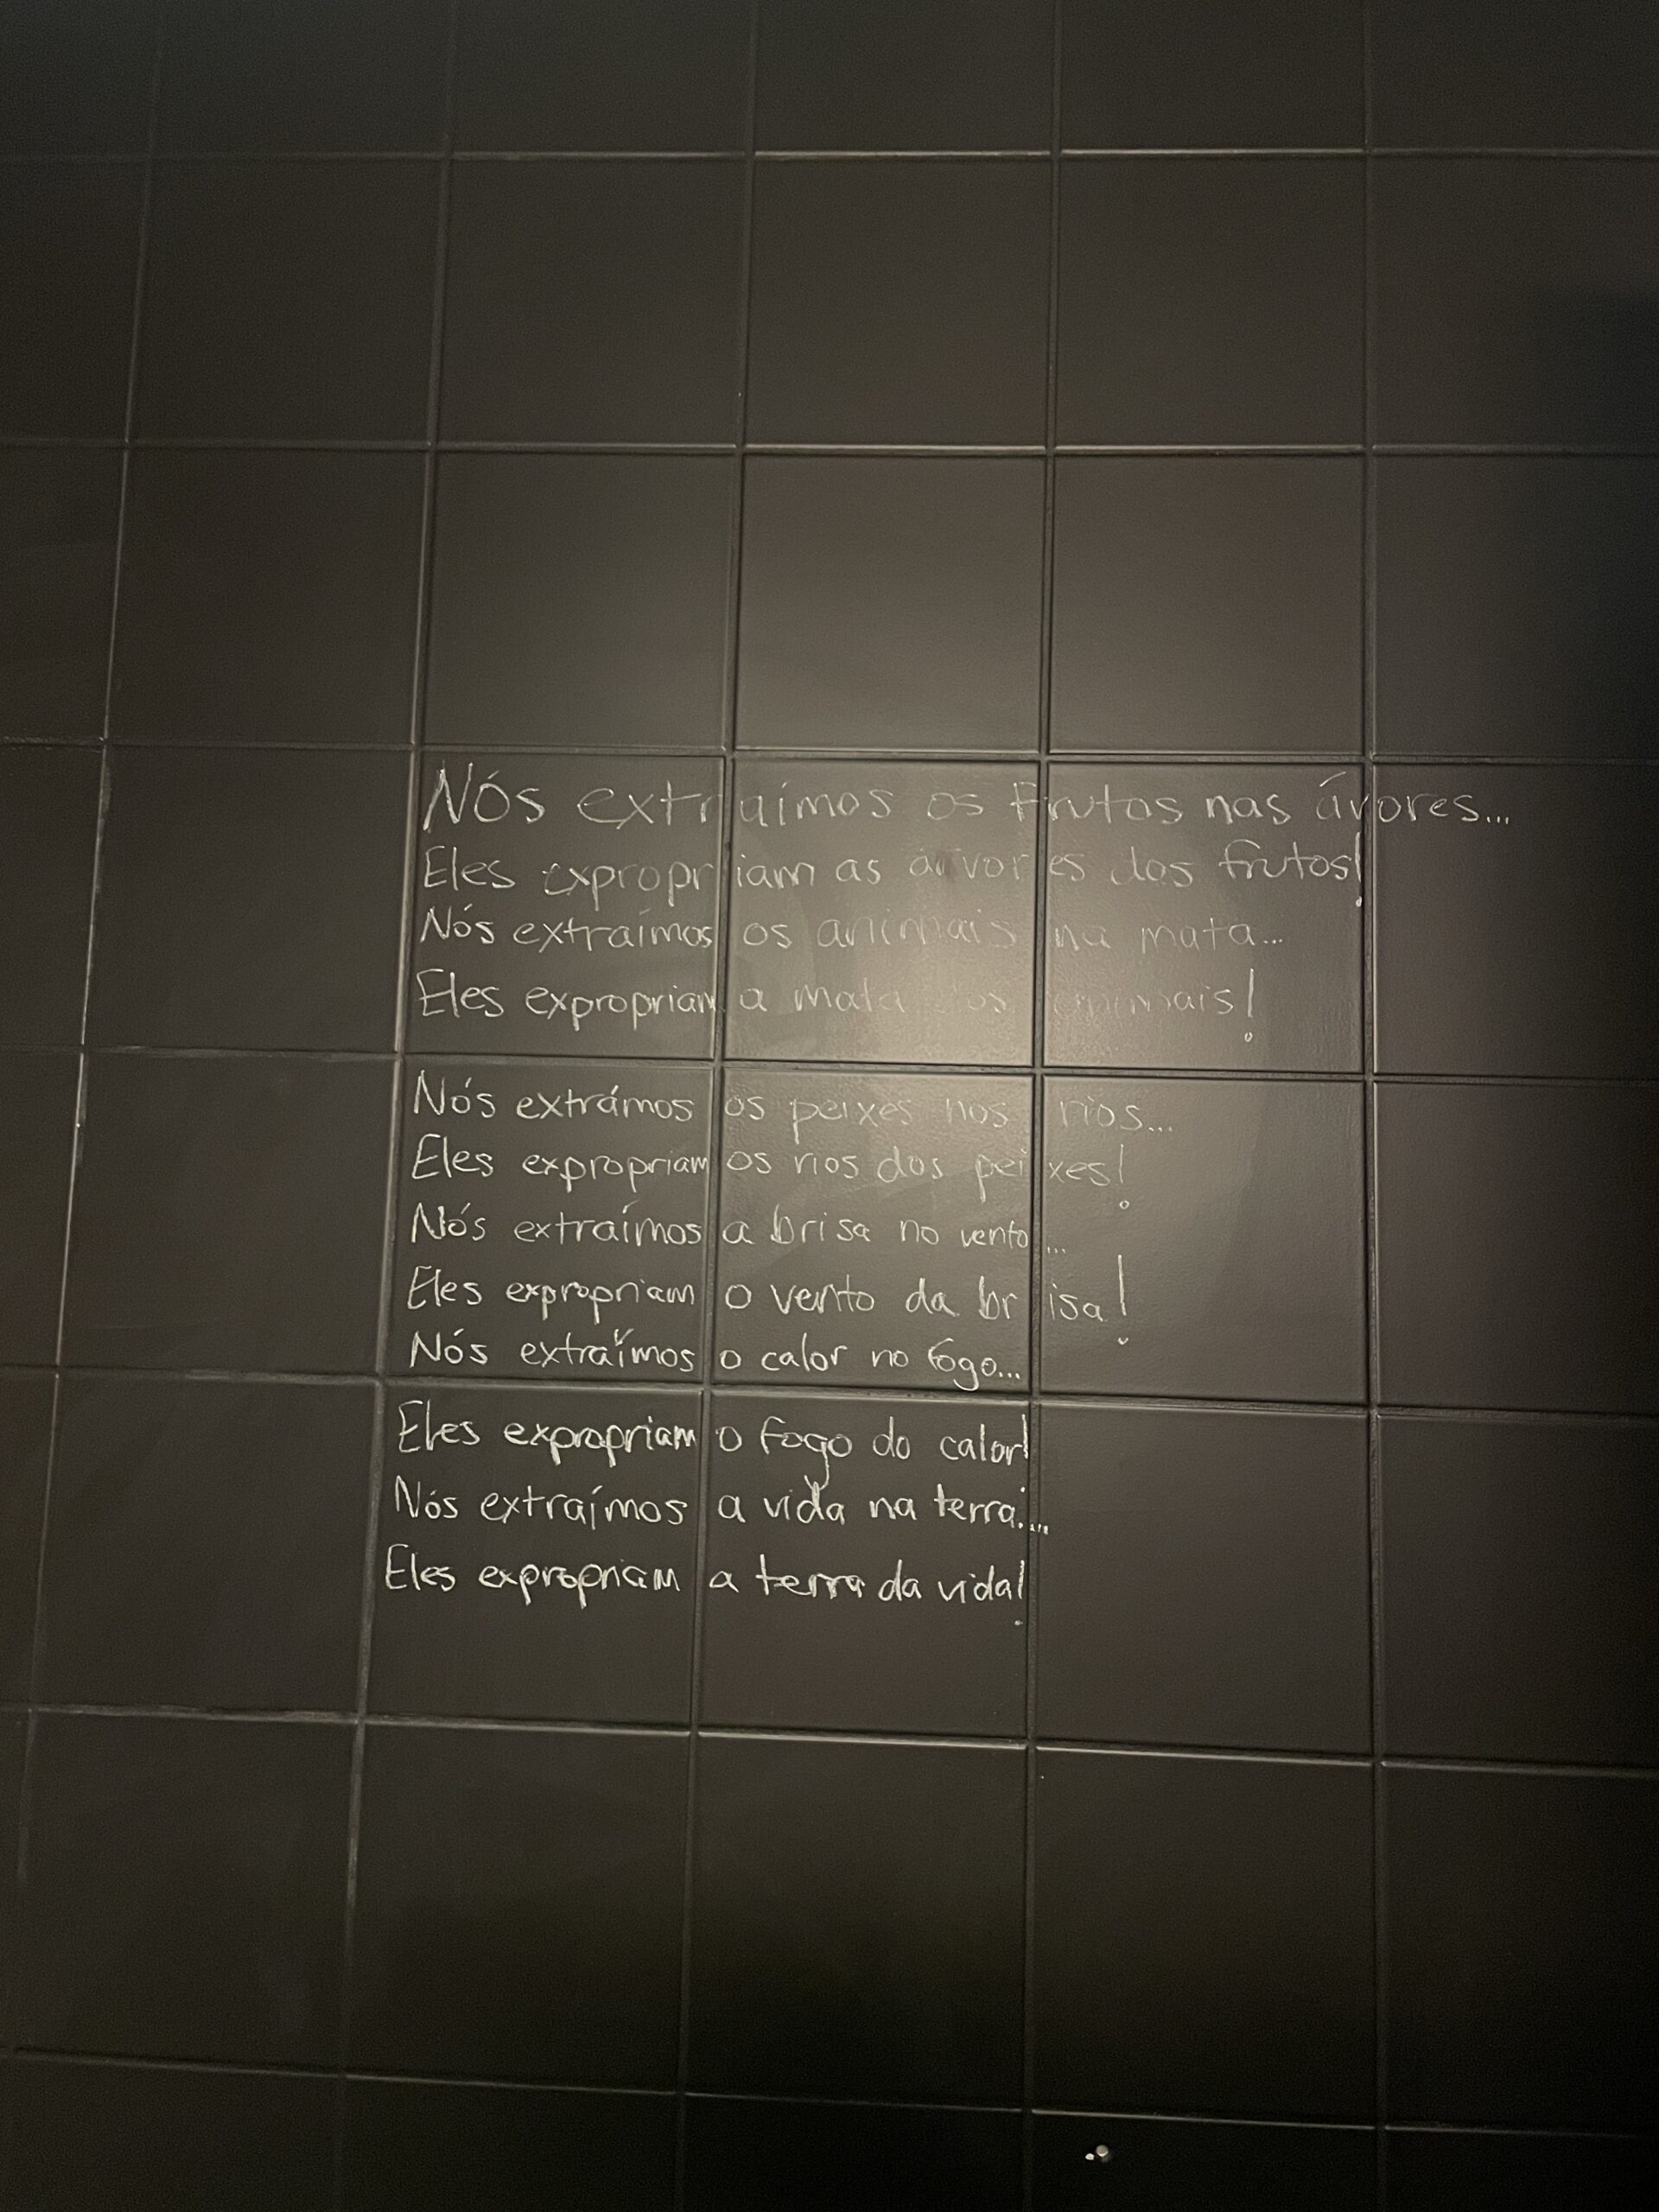 Nós extraímos os frutos nas ávores...
Eles expropriam as árvores dos frutos!
Nós extraímos os animais na mata...
Eles expropriam a mata dos animais!
Nós extrámos os peixes nos rios...
Eles expropriam os rios dos peixes!
Nós extraímos a brisa no vento...
Eles expropriam o vento da brisa!
Nós extraímos o calor no fogo...
Eles expropriam o fogo do calor!
Nós extraímos a vida na terra...
Eles expropriam a terra da vida!